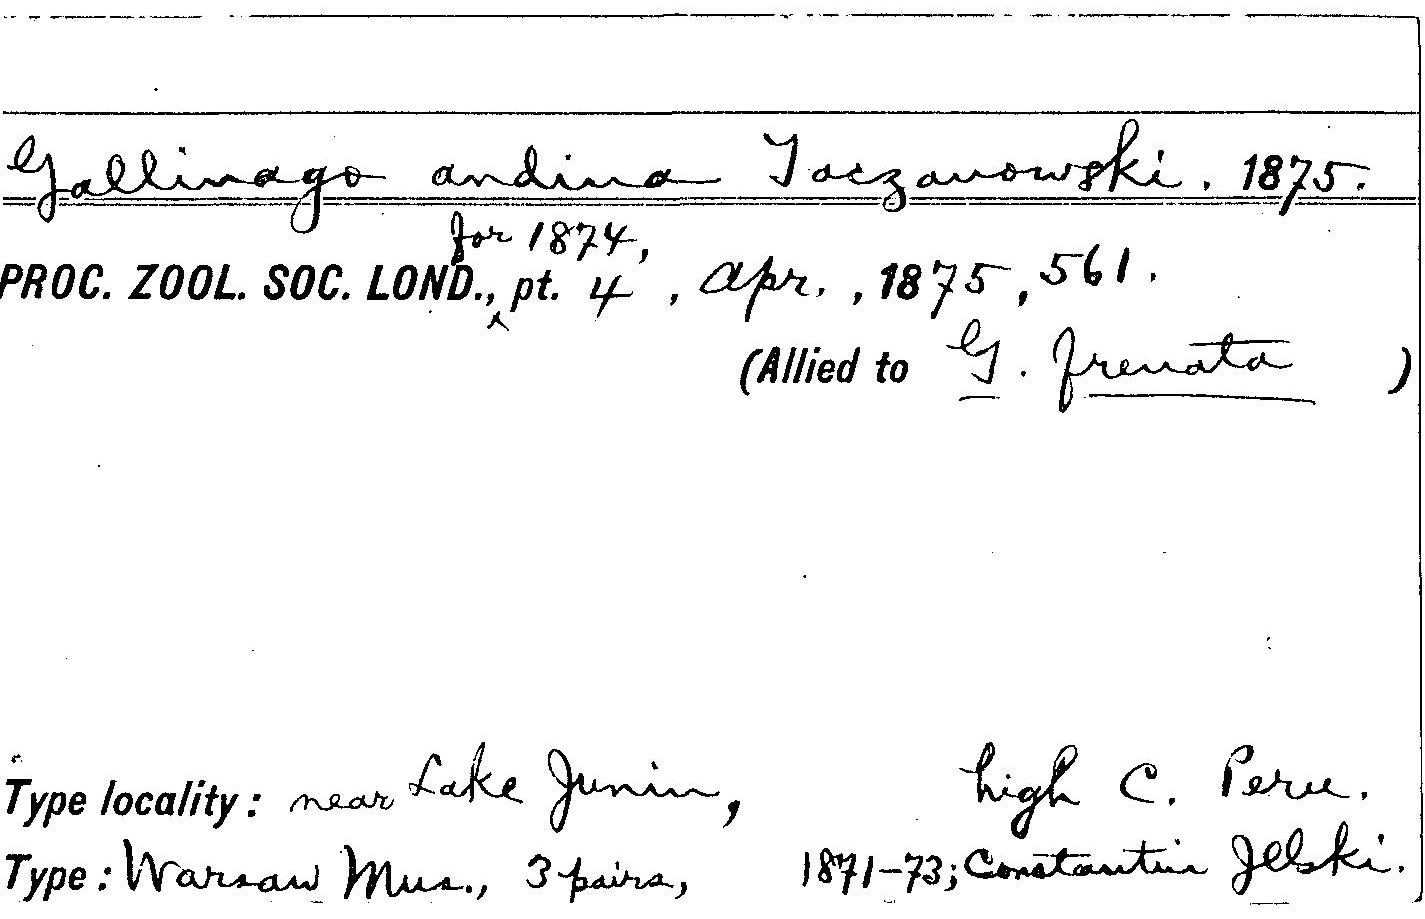 Gallinago andina Taczanowski. 1875.
for 1874,
PROC. ZOOL. SOC. LOND., pt. 4, Apr., 1875, 561.
(Allied to G. frenata )
Type locality: near Lake Junin, high C. Peru.
Type: Warsaw Mus., 3 pairs, 1871-73; Constantin Jelski.